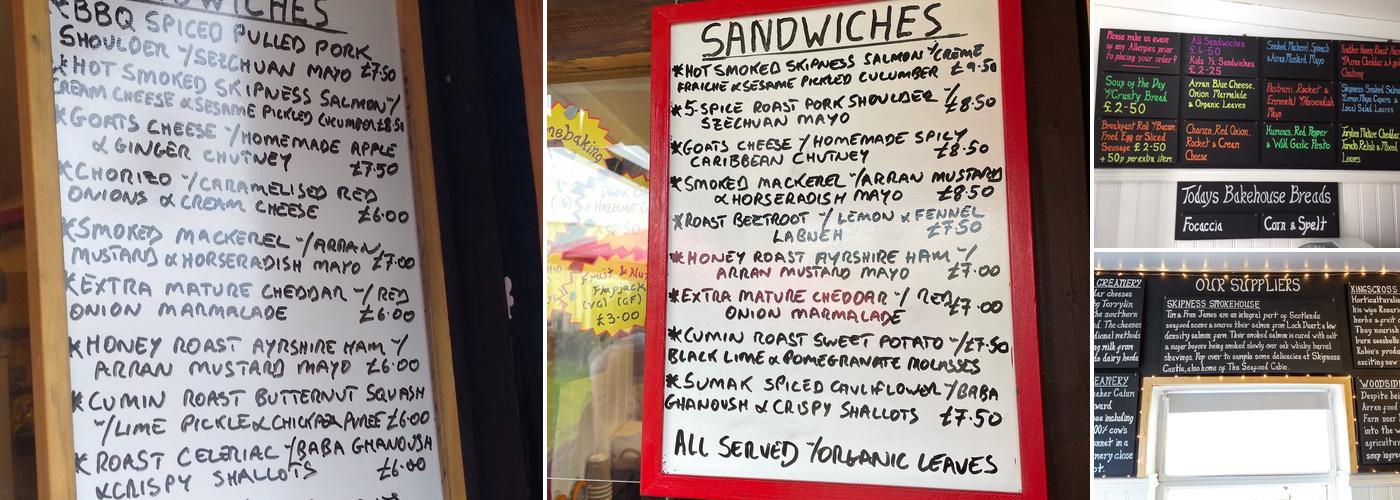 SANDWICHES
*BBQ SPICED PULLED PORK
SHOULDER -/SEZCHUAN MAYO £7.50
*HOT SMOKED SKIPNESS SALMON -/
CREAM CHEESE & SESAME PICKLED CUCUMBER £8.50
*GOATS CHEESE -/HOMEMADE APPLE
& GINGER CHUTNEY £7.50
*CHORIZO -/CARAMELISED RED
ONIONS & CREAM CHEESE £6.00
*SMOKED MACKEREL -/ARRAN
MUSTARD & HORSERADISH MAYO £7.00
*EXTRA MATURE CHEDDAR -/ RED
ONION MARMALADE £6.00
*HONEY ROAST AYRSHIRE HAM -/
ARRAN MUSTARD MAYO £6.00
*CUMIN ROAST BUTTERNUT SQUASH
-/LIME PICKLE & CHICKPEA PUREE £6.00
*ROAST CELERIAC -/BABA GHANOUSH
& CRISPY SHALLOTS £6.00
SANDWICHES
*HOT SMOKED SKIPNESS SALMON -/CRÈME
FRAICHE & SESAME PICKLED CUCUMBER £9.50
*5-SPICE ROAST PORK SHOULDER -/
SZECHUAN MAYO £8.50
*GOATS CHEESE -/HOMEMADE SPICY
CARIBBEAN CHUTNEY £8.50
*SMOKED MACKEREL -/ARRAN MUSTARD
& HORSERADISH MAYO £8.50
*ROAST BEETROOT -/ LEMON & FENNEL
LABNEH £7.50
*HONEY ROAST AYRSHIRE HAM -/
ARRAN MUSTARD MAYO £7.00
*EXTRA MATURE CHEDDAR -/ RED
ONION MARMALADE £7.00
*CUMIN ROAST SWEET POTATO -/ £7.50
BLACK LIME & POMEGRANATE MOLASSES
*SUMAK SPICED CAULIFLOWER -/BABA
GHANOUSH & CRISPY SHALLOTS £7.50
ALL SERVED -/ORGANIC LEAVES
Fruit & Nut
Flapjack
(VG) (GF)
£3.00
Please make us aware
of any Allergies prior
to placing your order!
All Sandwiches
£4-50
Kids ½ Sandwiches
£2-25
Smoked Mackerel, Spinach
& Arran Mustard Mayo
Soup of the Day
w/Crusty Bread
£2-50
Arran Blue Cheese,
Onion Marmalade
& Organic Leaves
Pastrami, Rocket &
Emmental w/Horseradish
Mayo
Breakfast Roll w/Bacon,
Fried Egg or Sliced
Sausage £2-50
+50p per extra item
Chorizo, Red Onion,
Rocket & Cream
Cheese
Humous, Red Pepper
& Wild Garlic Pesto
Todays Bakehouse Breads
Focaccia
Corn & Spelt
OUR SUPPLIERS
SKIPNESS SMOKEHOUSE
Tim & Fran James are an integral part of Scotlands
seafood scene & source their salmon from Loch Duart, a low
density salmon farm. Their smoked salmon is cured with salt
& sugar before being smoked slowly over oak whisky barrel
shavings. Pop over to sample some delicacies at Skipness
Castle, also home of The Seafood Cabin.
CREAMERY
KINGSCROSS
WOODSIDE